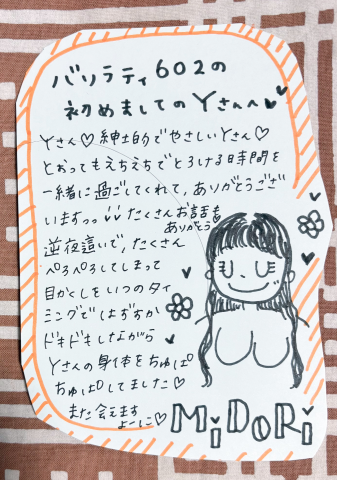 バリラティ602の
初めましてのYさんへ♥
Yさん♡紳士的でやさしいYさん♡
とおってもえちえちでとろける日時間を
一緒に過ごしてくれて、ありがとうござ
いますっっ!!たくさんお話も
ありがとう
逆夜這いで、たくさん
ぺろぺろしてしまって
目かくしをいつのタイ
ミングではずすか
ドキドキしながら
Yさんの身体をちゅぱ
ちゅぱしてました♡
また会えます
よーに♡
MiDORi